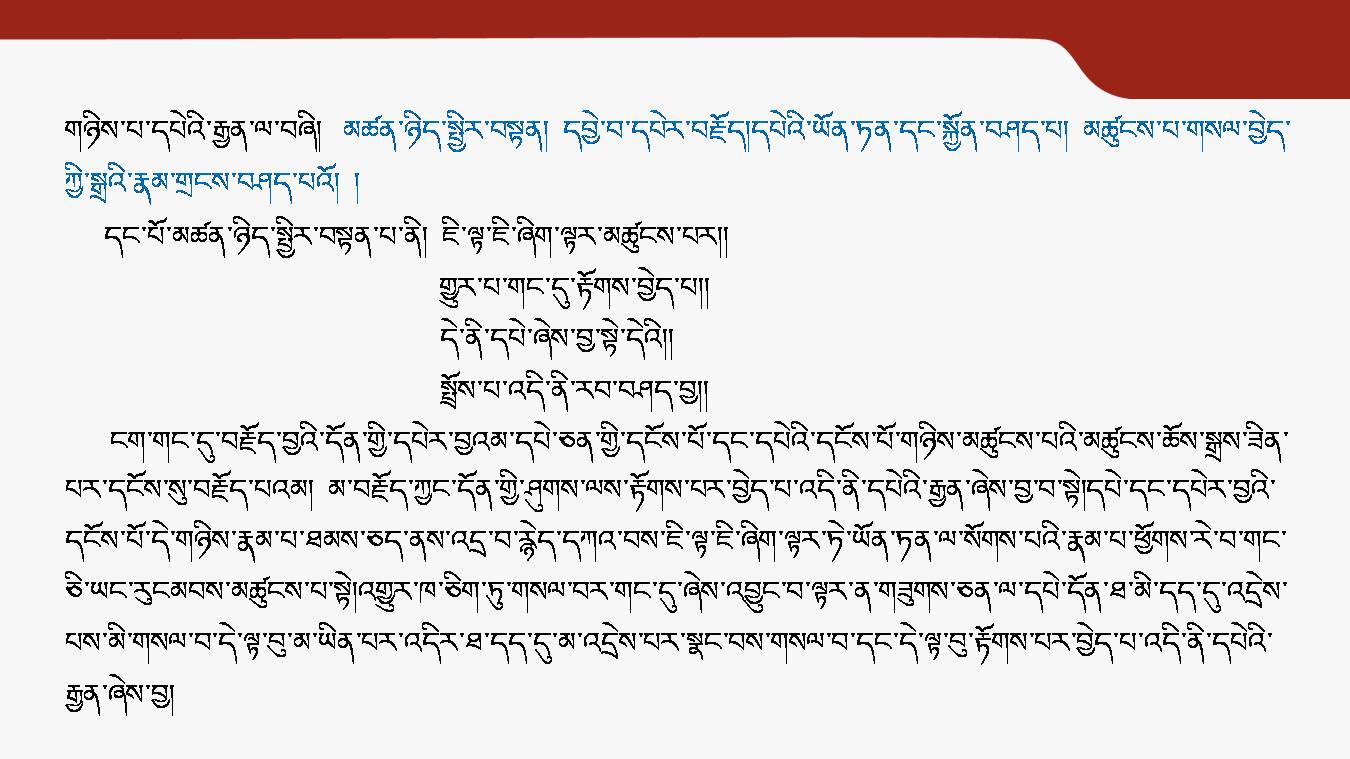 གཉིས་པ་དཔེའི་རྒྱན་ལ་བཞི།  མཚན་ཉིད་སྤྱིར་བསྟན།  དབྱེ་བ་དཔེར་བརྗོད།དཔེའི་ཡོན་ཏན་དང་སྐྱོན་བཤད་པ།  མཚུངས་པ་གསལ་བྱེད་
ཀྱི་སྒྲའི་རྣམ་གྲངས་བཤད་པའོ། །
དང་པོ་མཚན་ཉིད་སྤྱིར་བསྟན་པ་ནི།  ཇི་ལྟ་ཇི་ཞིག་ལྟར་མཚུངས་པར།།
གྱུར་པ་གང་དུ་རྟོགས་བྱེད་པ།།
དེ་ནི་དཔེ་ཞེས་བྱ་སྟེ་དེའི།།
སྤྲོས་པ་འདི་ནི་རབ་བཤད་བྱ།།
ངག་གང་དུ་བརྗོད་བྱའི་དོན་གྱི་དཔེར་བྱའམ་དཔེ་ཅན་གྱི་དངོས་པོ་དང་དཔེའི་དངོས་པོ་གཉིས་མཚུངས་པའི་མཚུངས་ཆོས་སྒྲས་ཟིན་
པར་དངོས་སུ་བརྗོད་པའམ།  མ་བརྗོད་ཀྱང་དོན་གྱི་ཤུགས་ལས་རྟོགས་པར་བྱེད་པ་འདི་ནི་དཔེའི་རྒྱན་ཞེས་བྱ་བ་སྟེ།དཔེ་དང་དཔེར་བྱའི་
དངོས་པོ་དེ་གཉིས་རྣམ་པ་ཐམས་ཅད་ནས་འདྲ་བ་རྙེད་དཀའ་བས་ཇི་ལྟ་ཇི་ཞིག་ལྟར་ཏེ་ཡོན་ཏན་ལ་སོགས་པའི་རྣམ་པ་ཕྱོགས་རེ་བ་གང་
ཅི་ཡང་རུངམབས་མཚུངས་པ་སྟེ།འགྱུར་ཁ་ཅིག་ཏུ་གསལ་བར་གང་དུ་ཞེས་འབྱུང་བ་ལྟར་ན་གཟུགས་ཅན་ལ་དཔེ་དོན་ཐ་མི་དད་དུ་འདྲེས་
པས་མི་གསལ་བ་དེ་ལྟ་བུ་མ་ཡིན་པར་འདིར་ཐ་དད་དུ་མ་འདྲེས་པར་སྣང་བས་གསལ་བ་དང་དེ་ལྟ་བུ་རྟོགས་པར་བྱེད་པ་འདི་ནི་དཔེའི་
རྒྱན་ཞེས་བྱ།